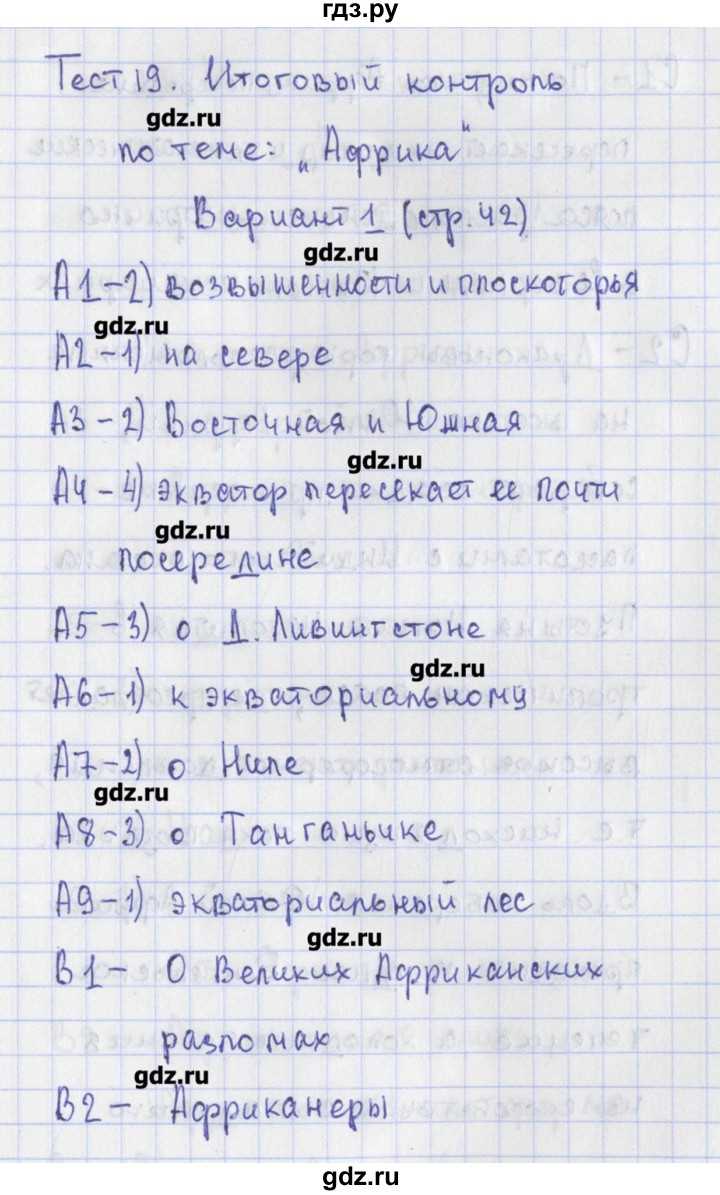 гдз.ру
Тест 19. Итоговый контроль
gdz.ru
по теме: „Африка“
Вариант 1 (стр. 42)
gdz.ru
А1-2) возвышенности и плоскогорья
gdz.ru
А2-1) на севере
А3-2) Восточная и Южная
gdz.ru
А4-4) экватор пересекает ее почти
gdz.ru
посередине
А5-3) о Д. Ливингстоне
gdz.ru
А6-1) к экваториальному
А7-2) о Ниле
gdz.ru
А8-3) о Танганьике
А9-1) экваториальный лес
gdz.ru
В1- О Великих Африканских
разломах
gdz.ru
В2- Африканеры
gdz.ru